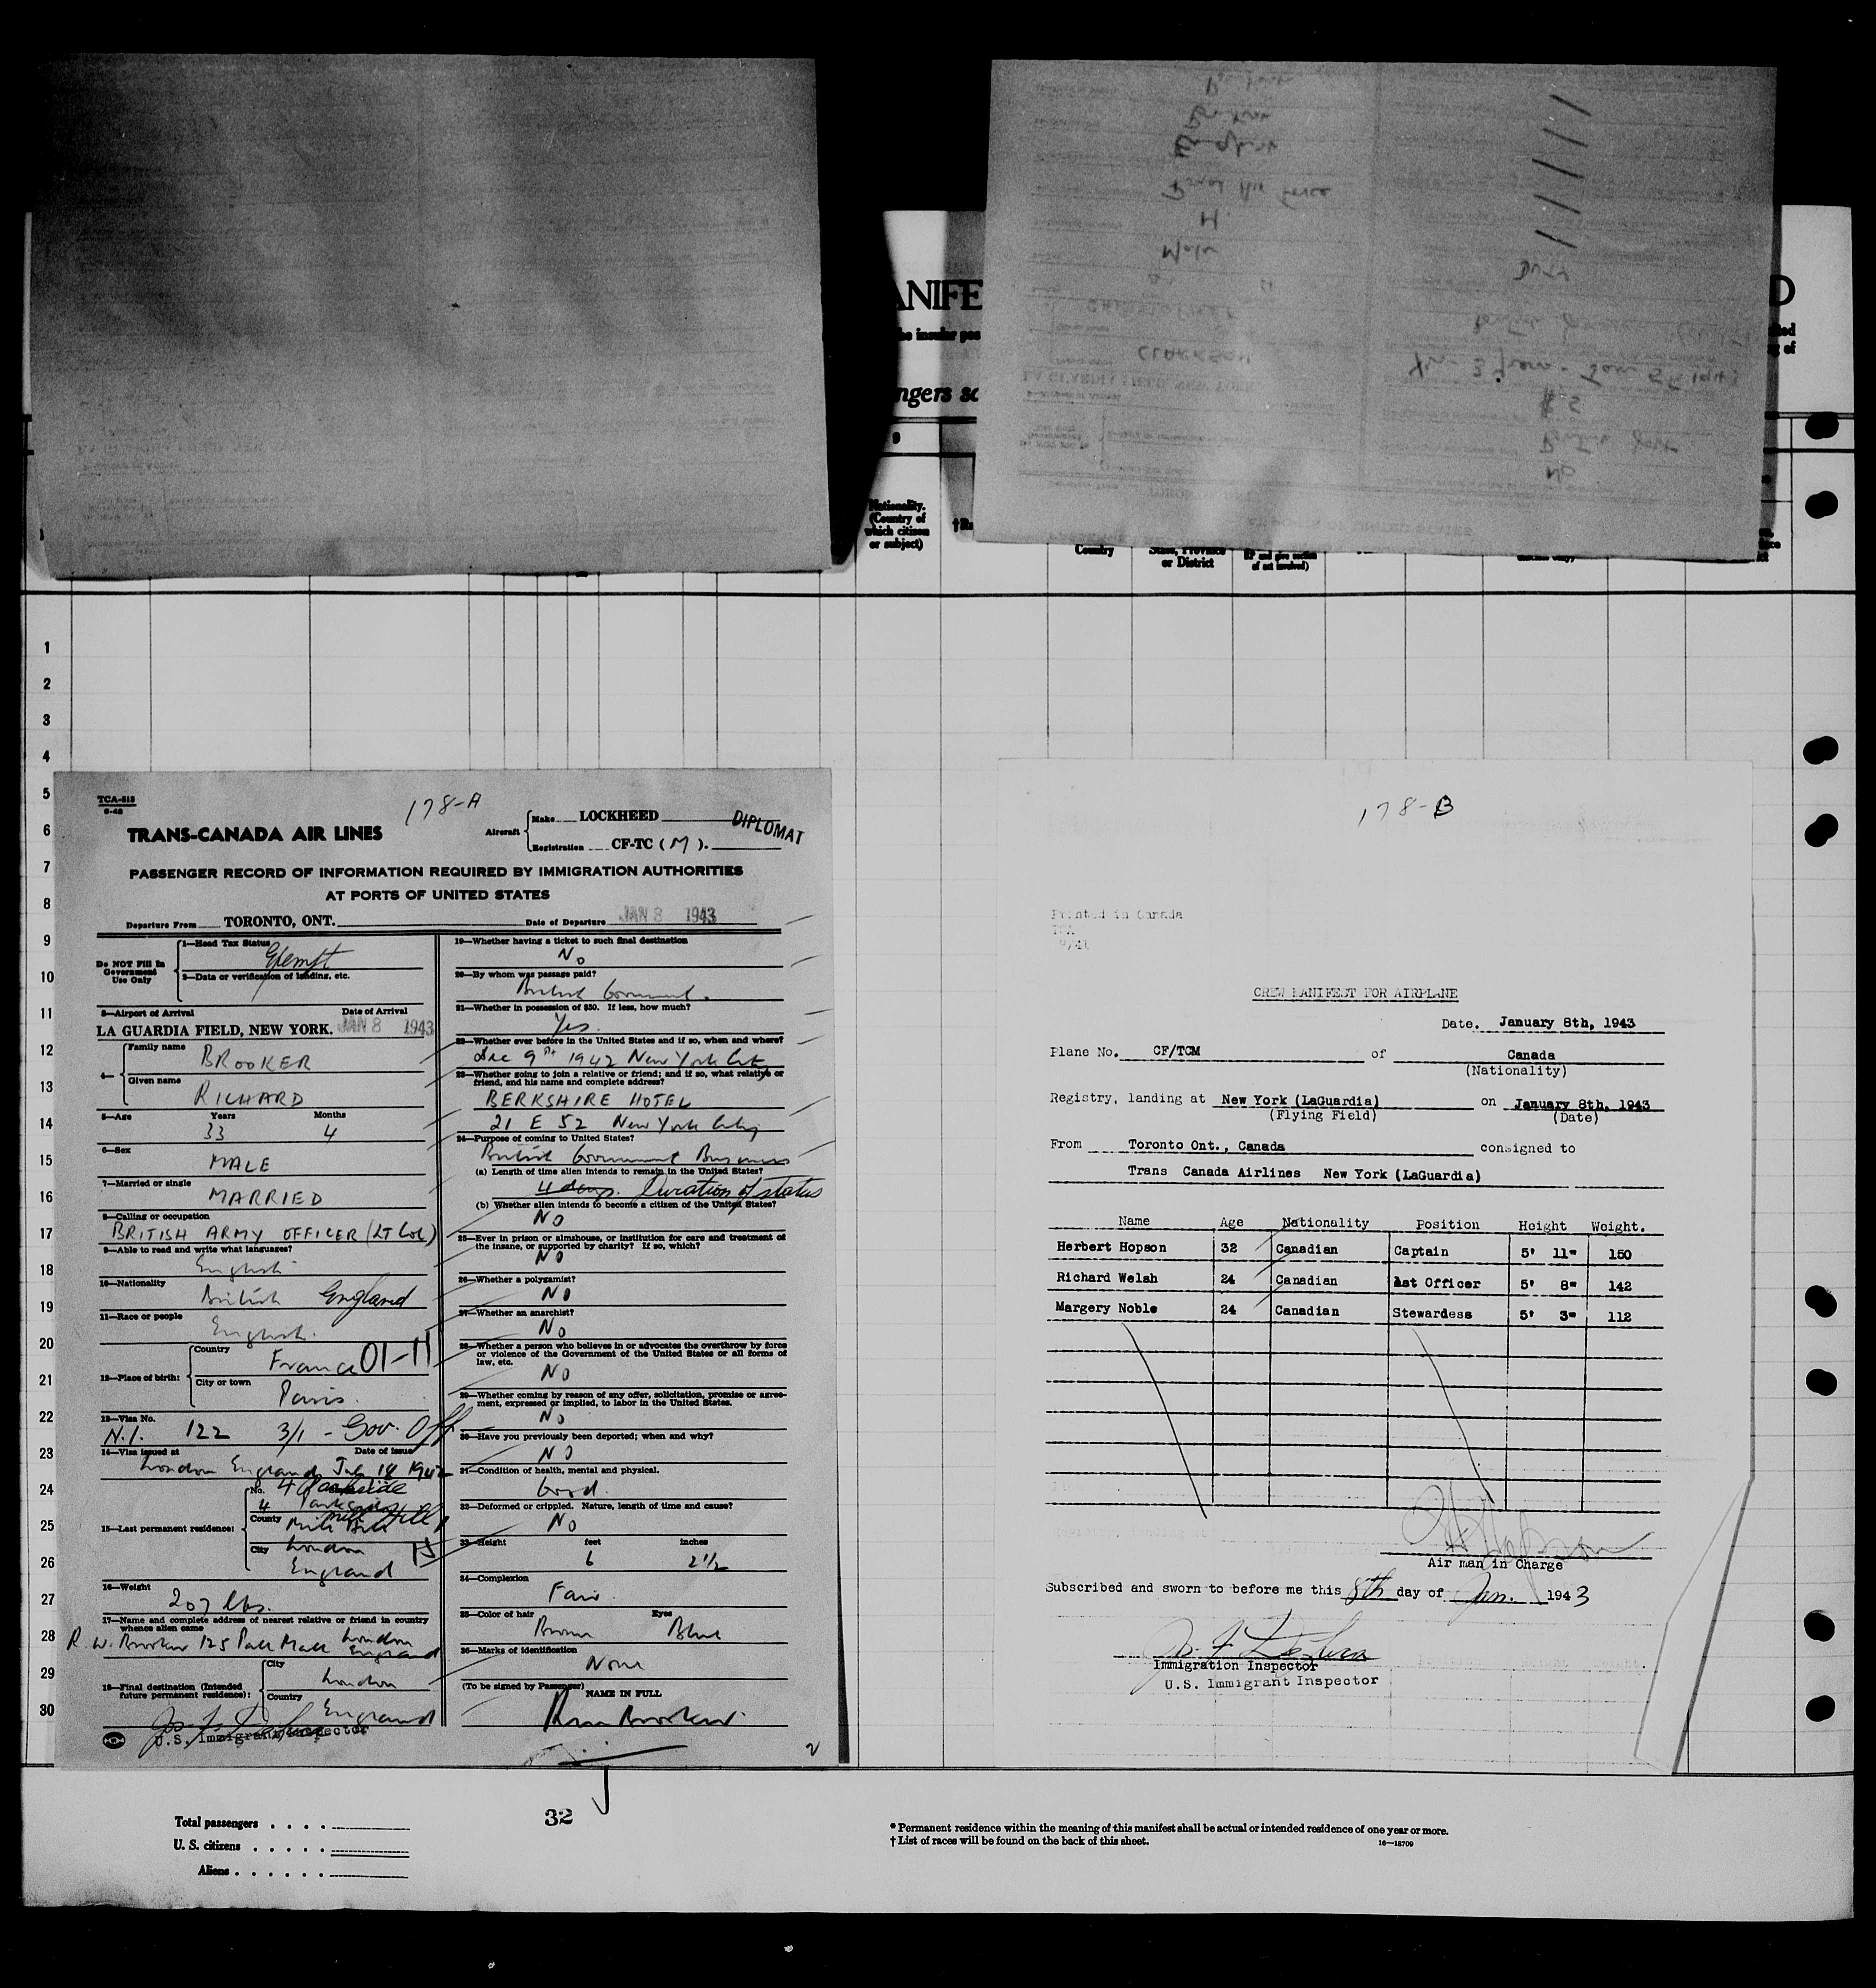 ANIFE
D
he insular pas
ngers sc
9
Nationality.
(Country of
which citizen
or subject)
Country
State, Province
or District
EP and give section
of act involved)
1
2
3
4
5
6
7
8
9
10
11
12
13
14
15
16
17
18
19
20
21
22
23
24
25
26
27
28
29
30
CLARKSON
Male
M
Royal Air Force
English
British
$5
No
178-A
TCA-518
TRANS-CANADA AIR LINES
Aircraft
Make LOCKHEED
Registration CF-TC (M).
DIPLOMAT
PASSENGER RECORD OF INFORMATION REQUIRED BY IMMIGRATION AUTHORITIES
AT PORTS OF UNITED STATES
Departure From TORONTO, ONT. Date of Departure JAN 8 1943
Do NOT Fill In
Government
Use Only
1—Head Tax Status
Exempt
2—Data or verification of landing, etc.
3—Airport of Arrival Date of Arrival
LA GUARDIA FIELD, NEW YORK. JAN 8 1943
4—
Family name
BROOKER
Given name
RICHARD
5—Age Years Months
33 4
6—Sex
MALE
7—Married or single
MARRIED
8—Calling or occupation
BRITISH ARMY OFFICER (LT COL)
9—Able to read and write what languages?
English
10—Nationality
British England
11—Race or people
English.
12—Place of birth:
Country
France 01-11
City or town
Paris.
13—Visa No.
N.I. 122 3/1 - Gov. Off
14—Visa issued at Date of issue
London England July 18 1942
15—Last permanent residence:
No. 4 Parkside
4 Parkside
County Mill Hill
City London 15
England
16—Weight
207 lbs.
27—Name and complete address of nearest relative or friend in country
whence alien came
R. W. Brooker 125 Pall Mall London
England
18—Final destination (Intended
future permanent residence):
City
London
Country
England
U.S. Immigrant Inspector
19—Whether having a ticket to such final destination
No
20—By whom was passage paid?
British Government.
21—Whether in possession of $50. If less, how much?
Yes.
22—Whether ever before in the United States and if so, when and where?
Dec 9th 1942 New York City
23—Whether going to join a relative or friend; and if so, what relative or
friend, and his name and complete address?
BERKSHIRE HOTEL
21 E 52 New York City
24—Purpose of coming to United States?
British Government Business
(a) Length of time alien intends to remain in the United States?
4 days. Duration of status
(b) Whether alien intends to become a citizen of the United States?
NO
25—Ever in prison or almshouse, or institution for care and treatment of
the insane, or supported by charity? If so, which?
NO
26—Whether a polygamist?
NO
27—Whether an anarchist?
No
28—Whether a person who believes in or advocates the overthrow by force
or violence of the Government of the United States or all forms of
law, etc.
NO
29—Whether coming by reason of any offer, solicitation, promise or agree-
ment, expressed or implied, to labor in the United States.
No
30—Have you previously been deported; when and why?
NO
31—Condition of health, mental and physical.
Good.
32—Deformed or crippled. Nature, length of time and cause?
NO
33—Height feet inches
6 2 1/2
34—Complexion
Fair.
35—Color of hair Eyes
Brown Blue
36—Marks of identification
None
(To be signed by Passenger)
NAME IN FULL
2
178-B
Printed in Canada
TCA
9/41
CREW MANIFEST FOR AIRPLANE
Date. January 8th, 1943
Plane No. CF/TCM of Canada
(Nationality)
Registry, landing at New York (LaGuardia) on January 8th, 1943
(Flying Field) (Date)
From Toronto Ont., Canada consigned to
Trans Canada Airlines New York (LaGuardia)
Name Age Nationality Position Height Weight.
Herbert Hopson 32 Canadian Captain 5' 11" 150
Richard Welsh 24 Canadian 1st Officer 5' 8" 142
Margery Noble 24 Canadian Stewardess 5' 3" 112
H Hopson
Air man in Charge
Subscribed and sworn to before me this 8th day of Jan. 1943
Immigration Inspector
U.S. Immigrant Inspector
Total passengers
U. S. citizens
Aliens
32
* Permanent residence within the meaning of this manifest shall be actual or intended residence of one year or more.
† List of races will be found on the back of this sheet.
16—18709